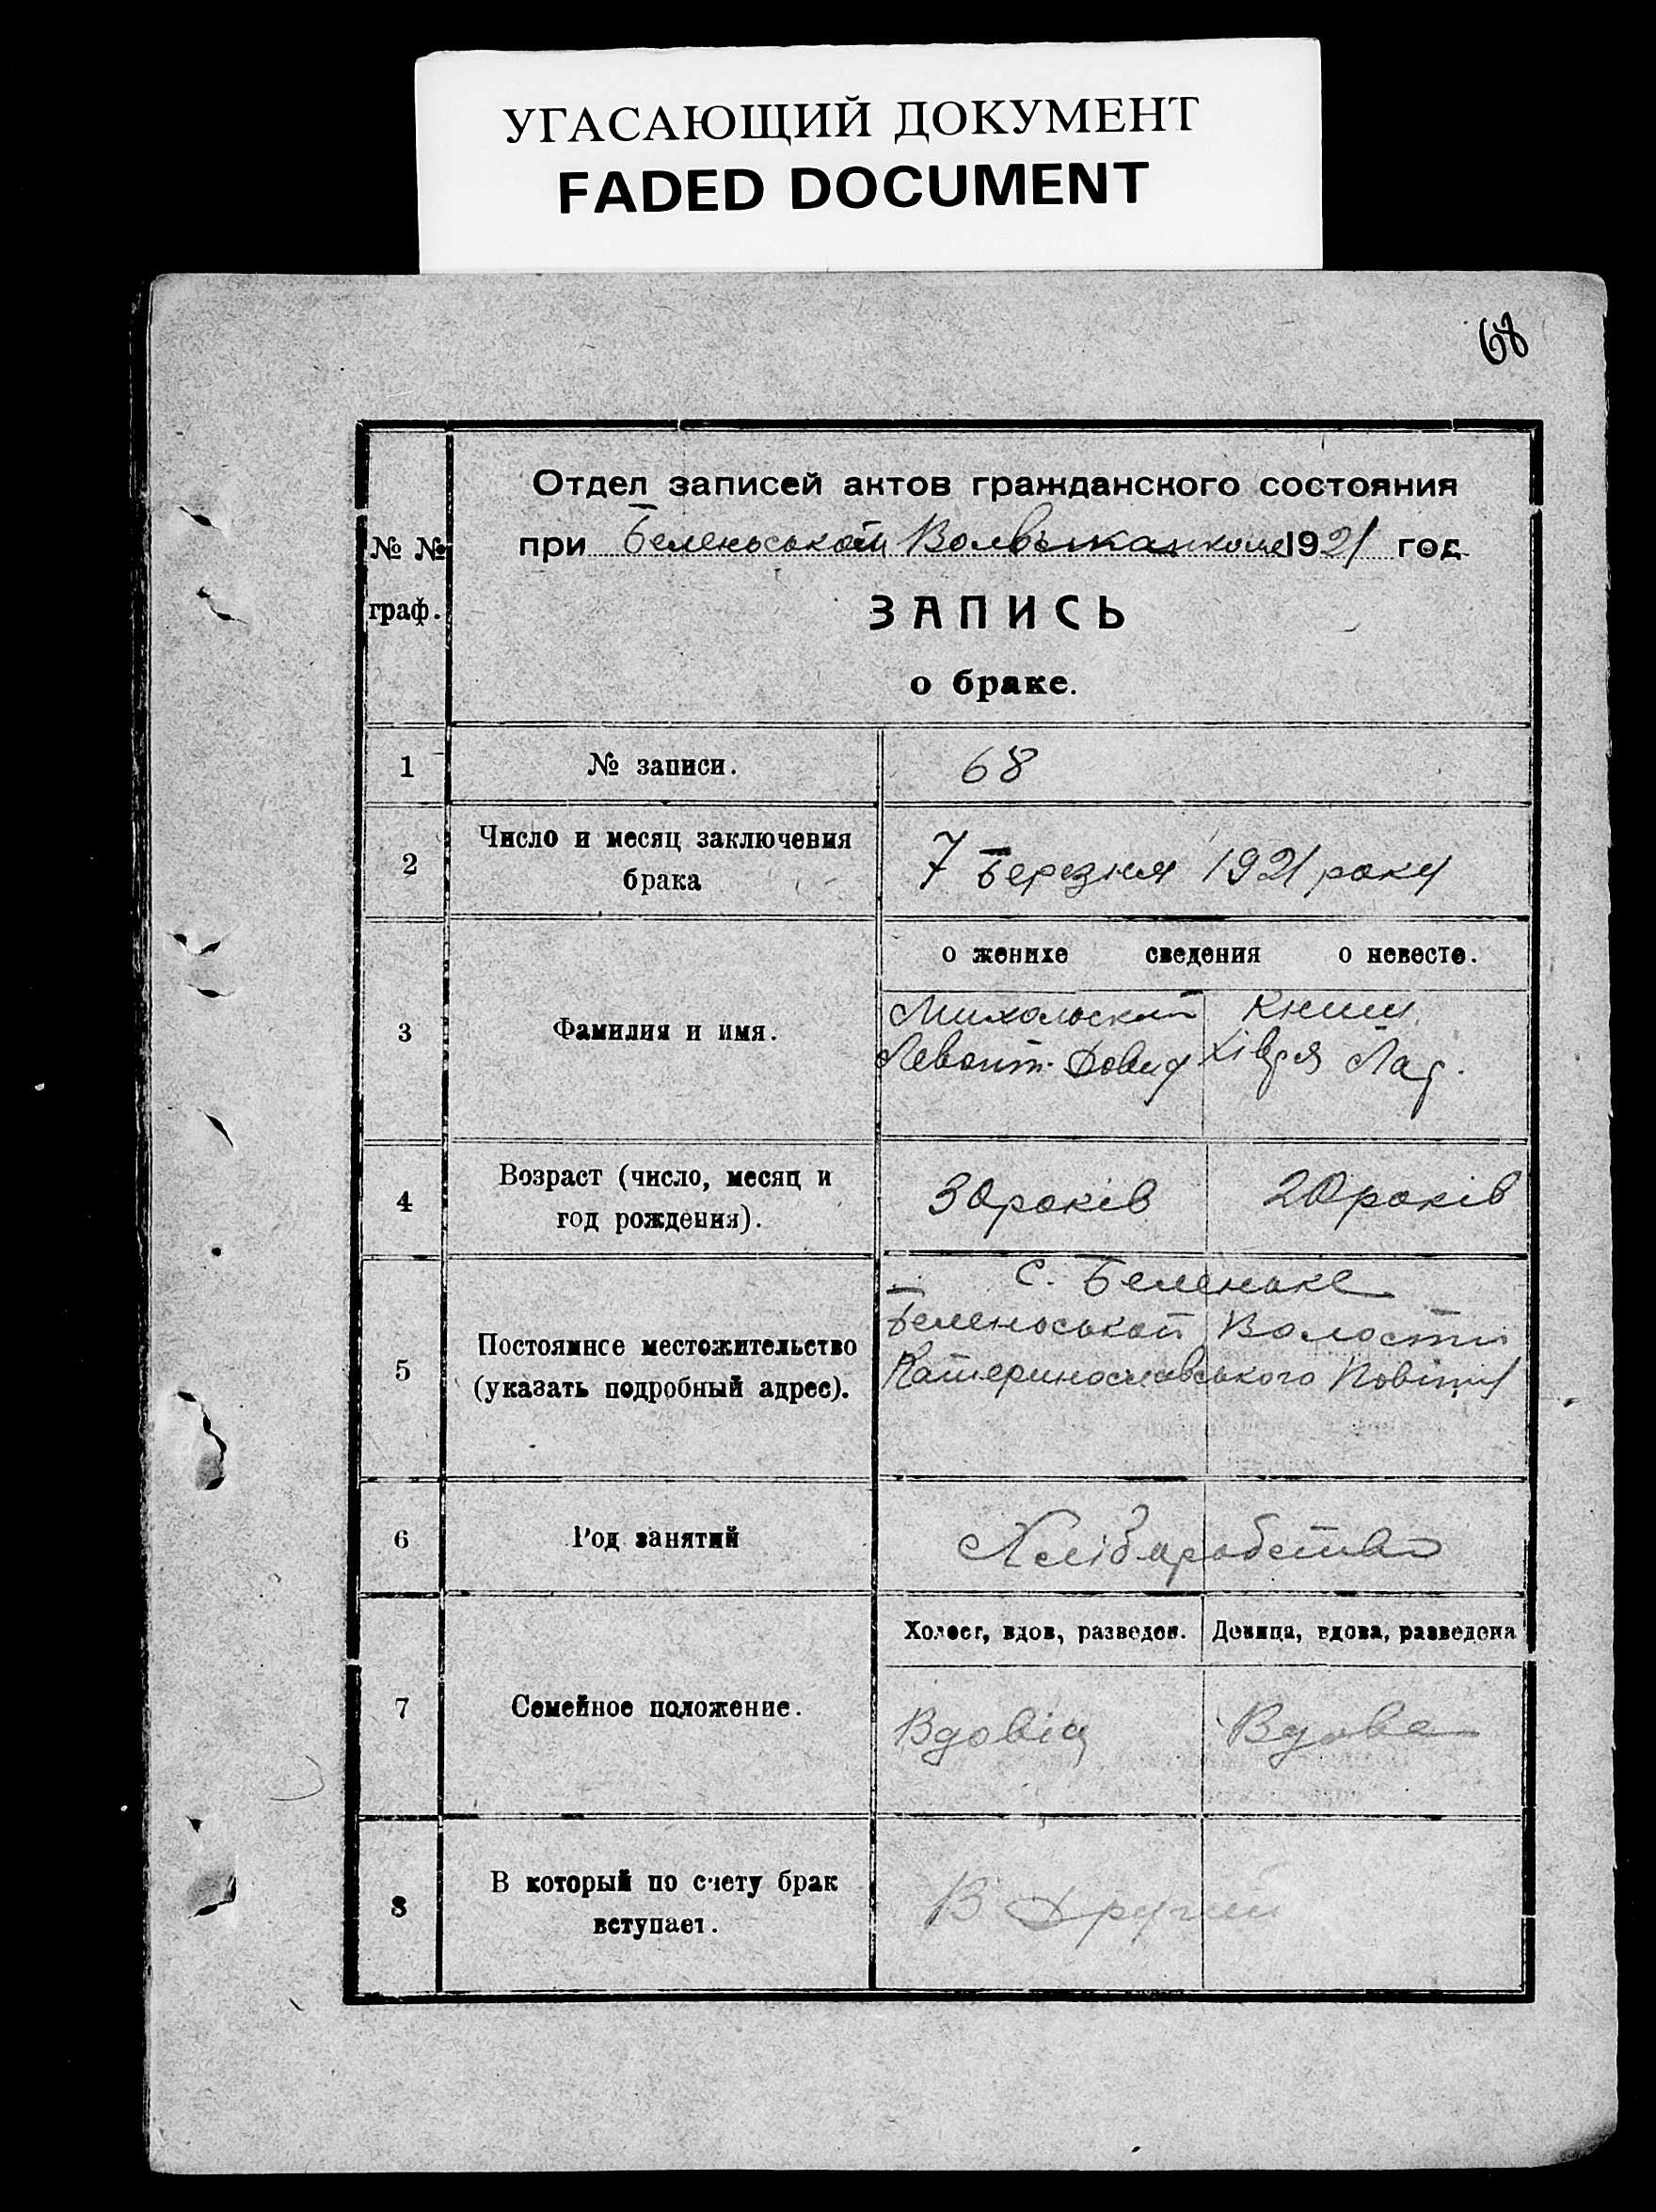 УГАСАЮЩИЙ ДОКУМЕНТ
FADED DOCUMENT
68
№ №
граф.
Отдел записей актов гражданского состояния
при Беленьськой 1921 год
ЗАПИСЬ
о браке.
1 № записи. 68
2 Число и месяц заключения
брака
7 Березня 1921 року
о женихе сведения о невесте.
3 Фамилия и имя.
Михальский Книш
Левонт. Довид Хівря Лар.
4 Возраст (число, месяц и
год рождения).
30 років 20 років
5 Постоянное местожительство
(указать подробный адрес).
С. Беленьке
Беленьськой Волости
Катеринославського Повіту
6 Род занятий
Хліборобство
Холост, вдов, разведен. Девица, вдова, разведена
7 Семейное положение.
Вдовіц Вдова
8 В который по счету брак
вступает.
В Другий